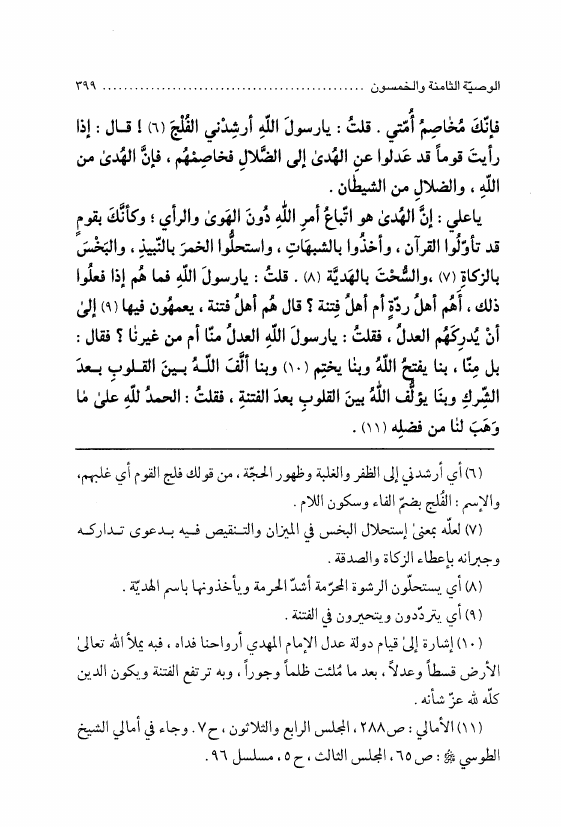 الوصيّة الثامنة والخمسون .............................................. ٣٩٩
فإنّكَ مُخٰاصِمُ أُمّتي . قلتُ : يارسولَ اللّهِ أرشِدْني الفُلْجَ (٦) ! قـال : إذا
رأيتَ قوماً قد عَدلوا عنِ الهُدىٰ إلى الضَّلالِ فخاصِمْهُم ، فإنَّ الهُدىٰ من
اللّهِ ، والضلالَ من الشيطٰان .
ياعلي : إنَّ الهُدىٰ هو اتّباعُ أمرِ اللّهِ دُونَ الهَوىٰ والرأي ؛ وكأنَّكَ بقومٍ
قد تأوّلُوا القرآن ، وأخذُوا بالشبهاتِ ، واستحلُّوا الخمرَ بالنّبيذِ ، والبَخْسَ
بالزكاةِ (٧) ،والسُّحْتَ بالهَديَّة (٨) . قلتُ : يارسولَ اللّهِ فما هُم إذا فعلُوا
ذلك ، أهُم أهلُ ردّةٍ أم أهلُ فِتنة ؟ قال هُم أهلُ فتنة ، يعمهُون فيها (٩) إلىٰ
أنْ يُدرِكَهُم العدلُ ، فقلتُ : يارسولَ اللّهِ العدلُ منّا أم من غيرنٰا ؟ فقال :
بل مِنّا ، بنا يفتحُ اللّهُ وبنٰا يختِم (١٠) وبنا ألَّفَ اللّـهُ بـينَ القـلوبِ بـعدَ
الشّركِ وبنَا يؤلِّف اللّهُ بينَ القلوبِ بعدَ الفتنةِ ، فقلتُ : الحمدُ للّهِ علىٰ مٰا
وَهَبَ لنٰا من فضلِه (١١) .
(٦) أي أرشدني إلى الظفر والغلبة وظهور الحجّة ، من قولك فلج القوم أي غلبهم،
والإسم : الفُلج بضمّ الفاء وسكون اللام .
(٧) لعلّه بمعنىٰ إستحلال البخس في الميزان والتـنقيص فـيه بـدعوى تـداركـه
وجبرانه بإعطاء الزكاة والصدقة .
(٨) أي يستحلّون الرشوة المحرّمة أشدّ الحرمة ويأخذونها باسم الهديّة .
(٩) أي يتردّدون ويتحيرون في الفتنة .
(١٠) إشارة إلىٰ قيام دولة عدل الإمام المهدي أرواحنا فداه ، فبه يملأ الله تعالىٰ
الأرض قسطاً وعدلاً ، بعد ما مُلئت ظلماً وجوراً ، وبه ترتفع الفتنة ويكون الدين
كلّه لله عزّ شأنه .
(١١) الأمالي : ص٢٨٨، المجلس الرابع والثلاثون ، ح٧. وجاء في أمالي الشيخ
الطوسي : ص٦٥، المجلس الثالث ، ح٥، مسلسل ٩٦.